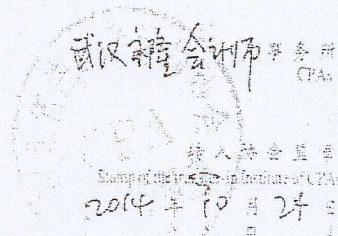 武汉 会计师事务所
CPAs
转入协会盖章
Stamp of the Institute of CPAs
2014年10月24日